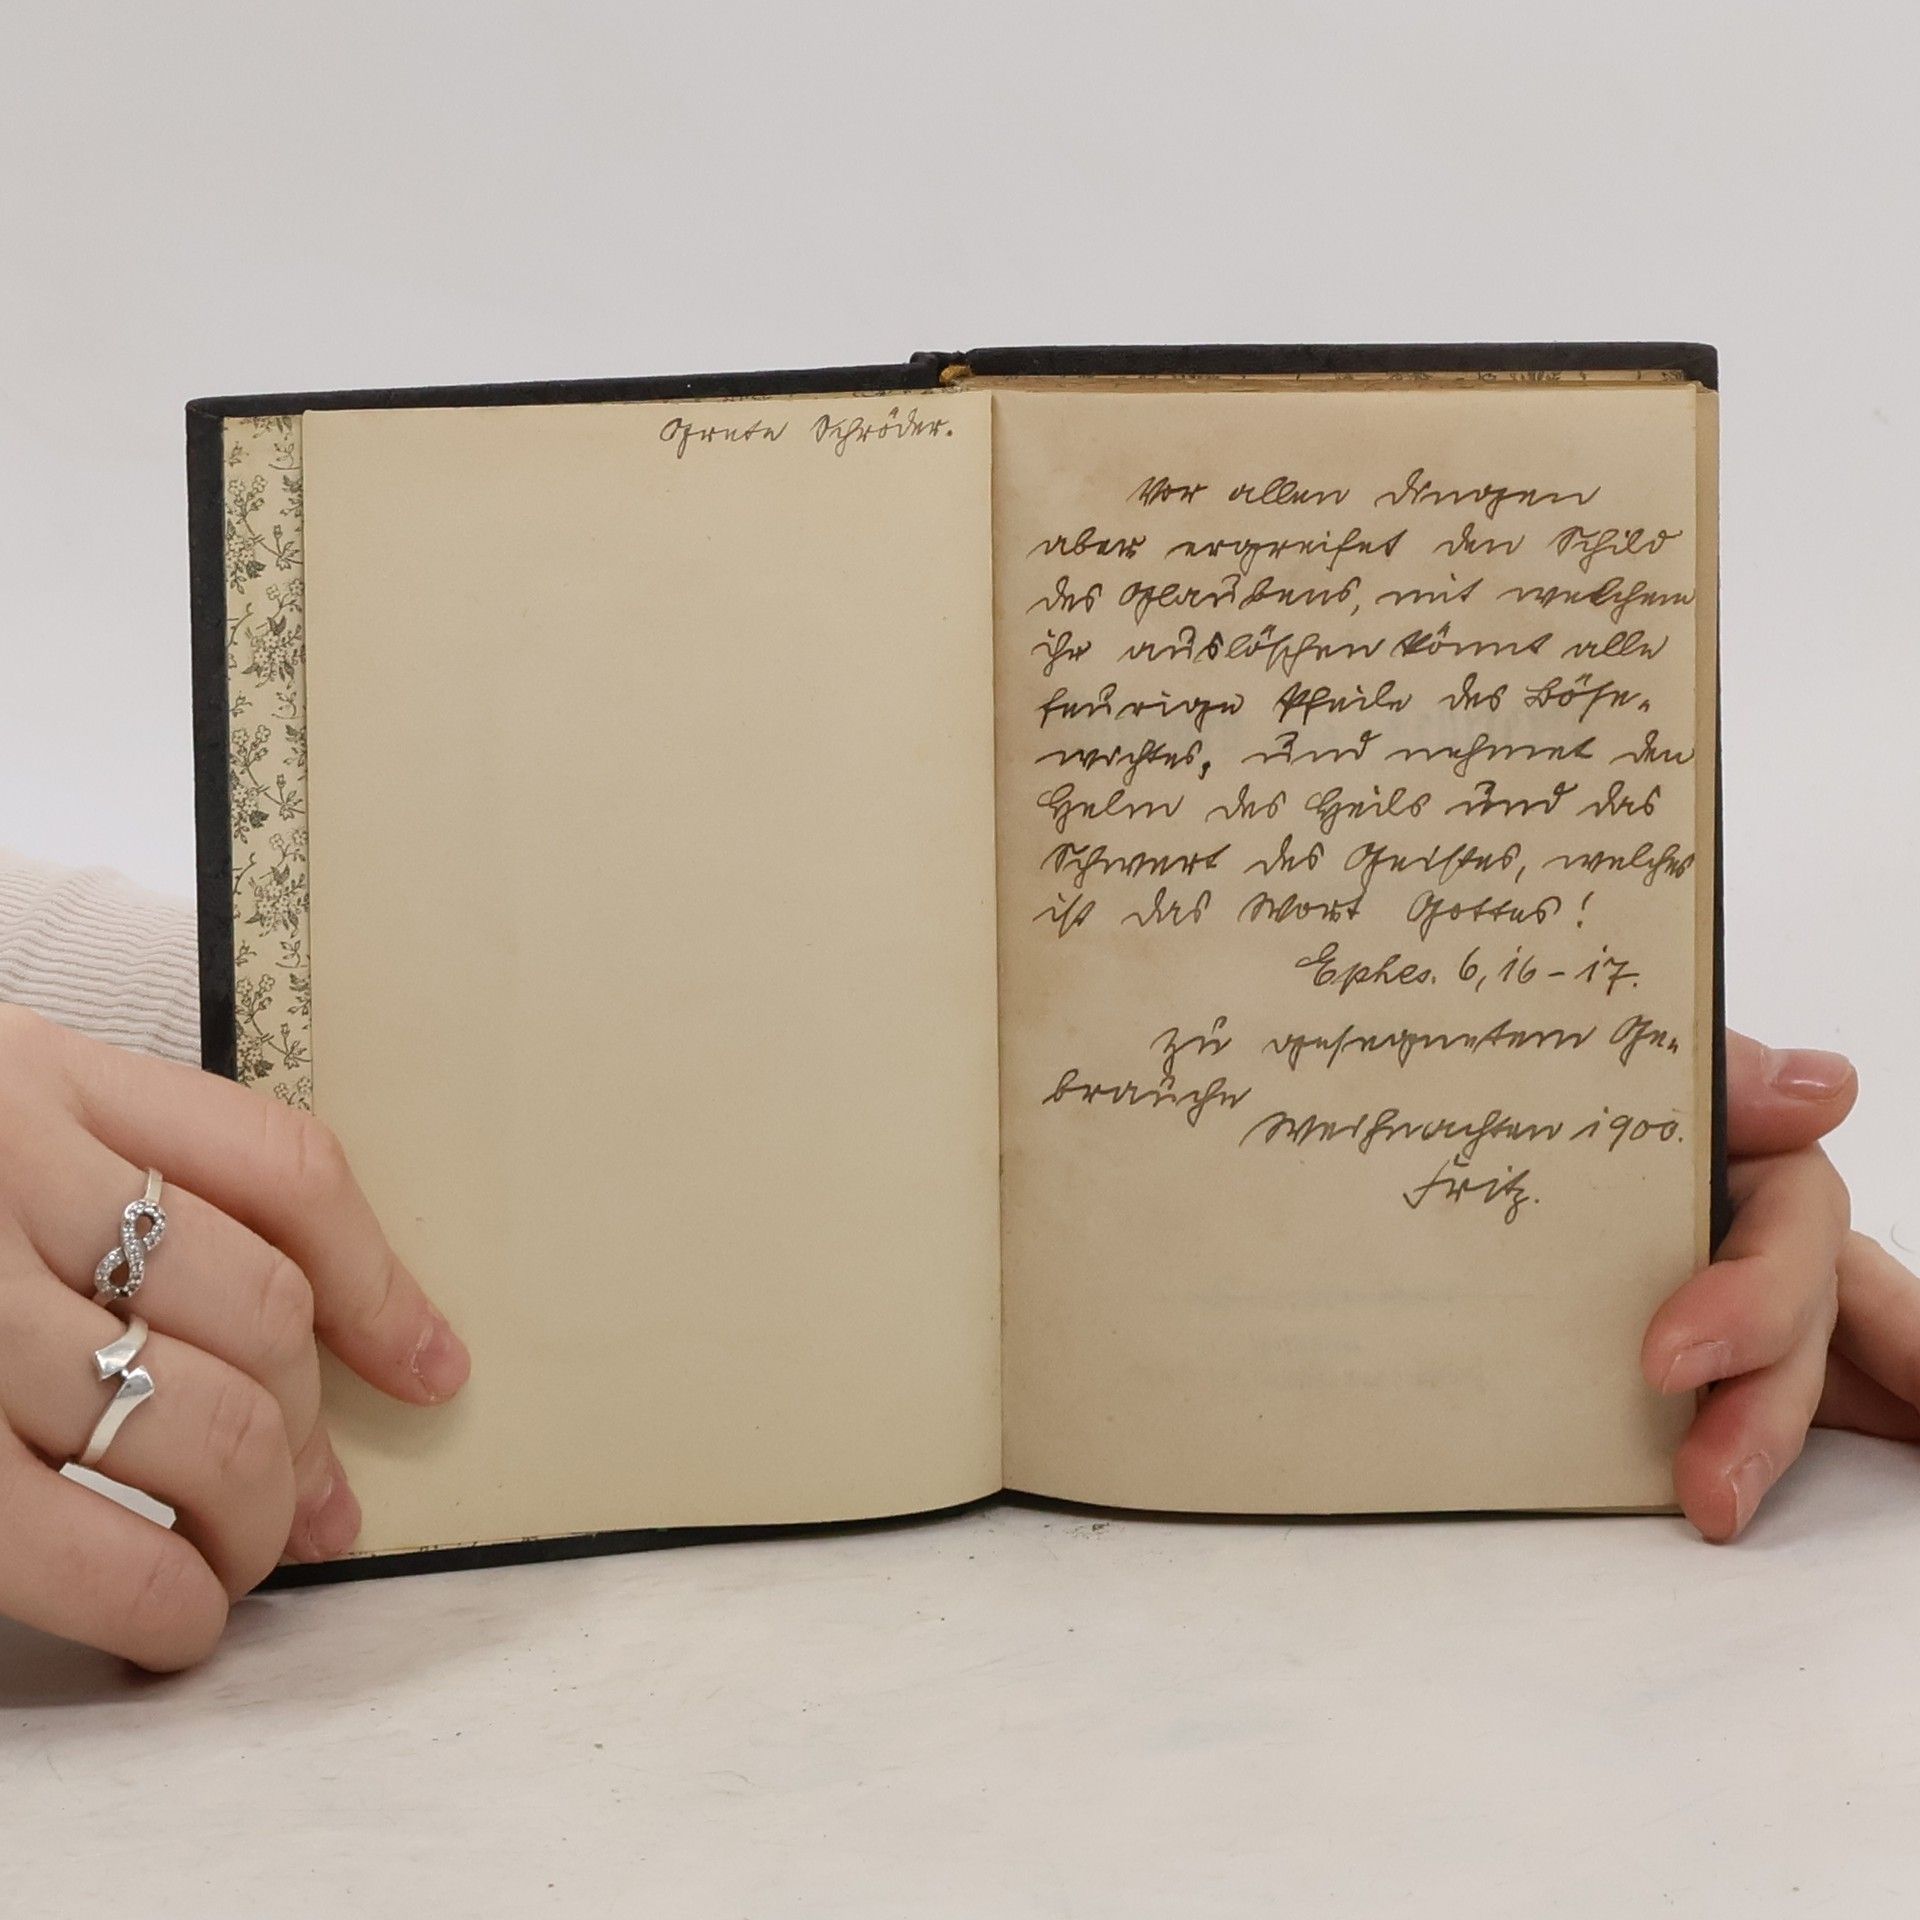 Grete Schröder.
Vor allen Dingen
aber ergreifet den Schild
des Glaubens, mit welchem
ihr auslöschen könnt alle
feurige Pfeile des Böse-
wichtes, und nehmet den
Helm des Heils und das
Schwert des Geistes, welches
ist das Wort Gottes!
Ephes. 6, 16-17.
Zu gesegnetem Ge-
brauche
Weihnachten 1900.
Fritz.